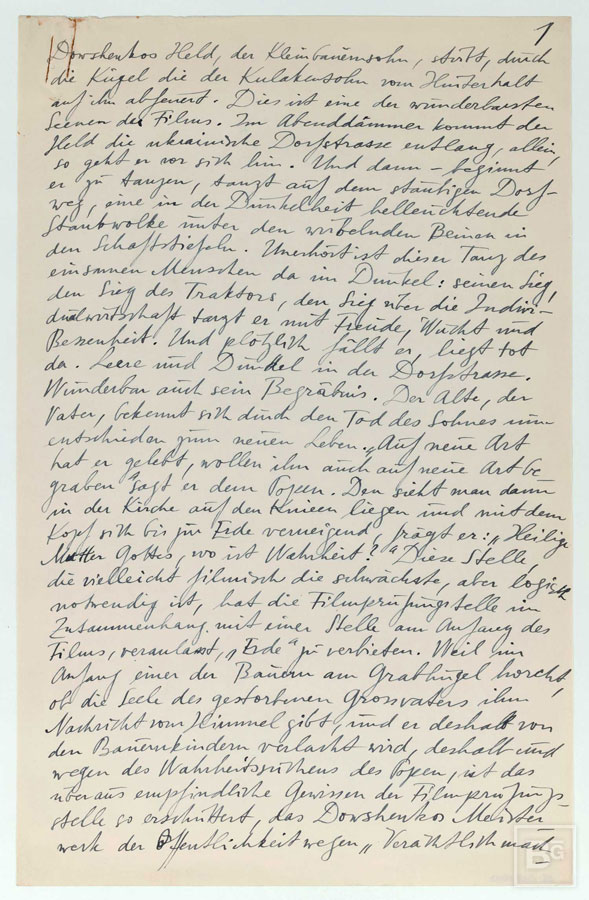 1
Dowshenkos Held, der Kleinbauernsohn, stirbt, durch
die Kugel die der Kulakensohn vom Hinterhalt
auf ihn abfeuert. Dies ist eine der wunderbarsten
Scenen des Films. Im Abenddämmer kommt der
Held die ukrainische Dorfstrasse entlang, allein,
so geht er vor sich hin. Und dann – beginnt
er zu tanzen, tanzt auf dem staubigen Dorf-
weg, eine in der Dunkelheit helleuchtende
Staubwolke unter den wirbelnden Beinen in
den Schaftstiefeln. Unerhört ist dieser Tanz des
einsamen Menschen da im Dunkel: seinen Sieg,
den Sieg des Traktors, den Sieg über die Indivi-
dualwirtschaft tanzt er mit Freude, Wucht und
Bessenheit. Und plötzlich fällt er, liegt tot
da. Leere und Dunkel in der Dorfstrasse.
Wunderbar auch sein Begräbnis. Der Alte, der
Vater, bekennt sich durch den Tod des Sohnes nun
entschieden zum neuen Leben. „Auf neue Art
hat er gelebt, wollen ihn auch auf neue Art be
graben" sagt er dem Popen. Den sieht man dann
in der Kirche auf den Knieen liegen und mit dem
Kopf sich bis zur Erde verneigend, frägt er: „Heilige
Mutter Gottes, wo ist Wahrheit?" Diese Stelle,
die vielleicht filmisch die schwächste, aber logisch
notwendig ist, hat die Filmprüfungstelle im
Zusammenhang mit einer Stelle am Anfang des
Films, veranlasst, „Erde" zu verbieten. Weil im
Anfang einer der Bauern am Grabhügel horcht,
ob die Seele des gestorbenen Grossvaters ihm
Nachricht vom Himmel gibt, und er deshalb von
den Bauernkindern verlacht wird, deshalb und
wegen des Wahrheitssuchens des Popen, ist das
überaus empfindliche Gewissen der Filmprüfungs-
stelle so erschüttert, das Dowshenkos Meister
werk der Öffentlichkeit wegen „Verächtlichmach